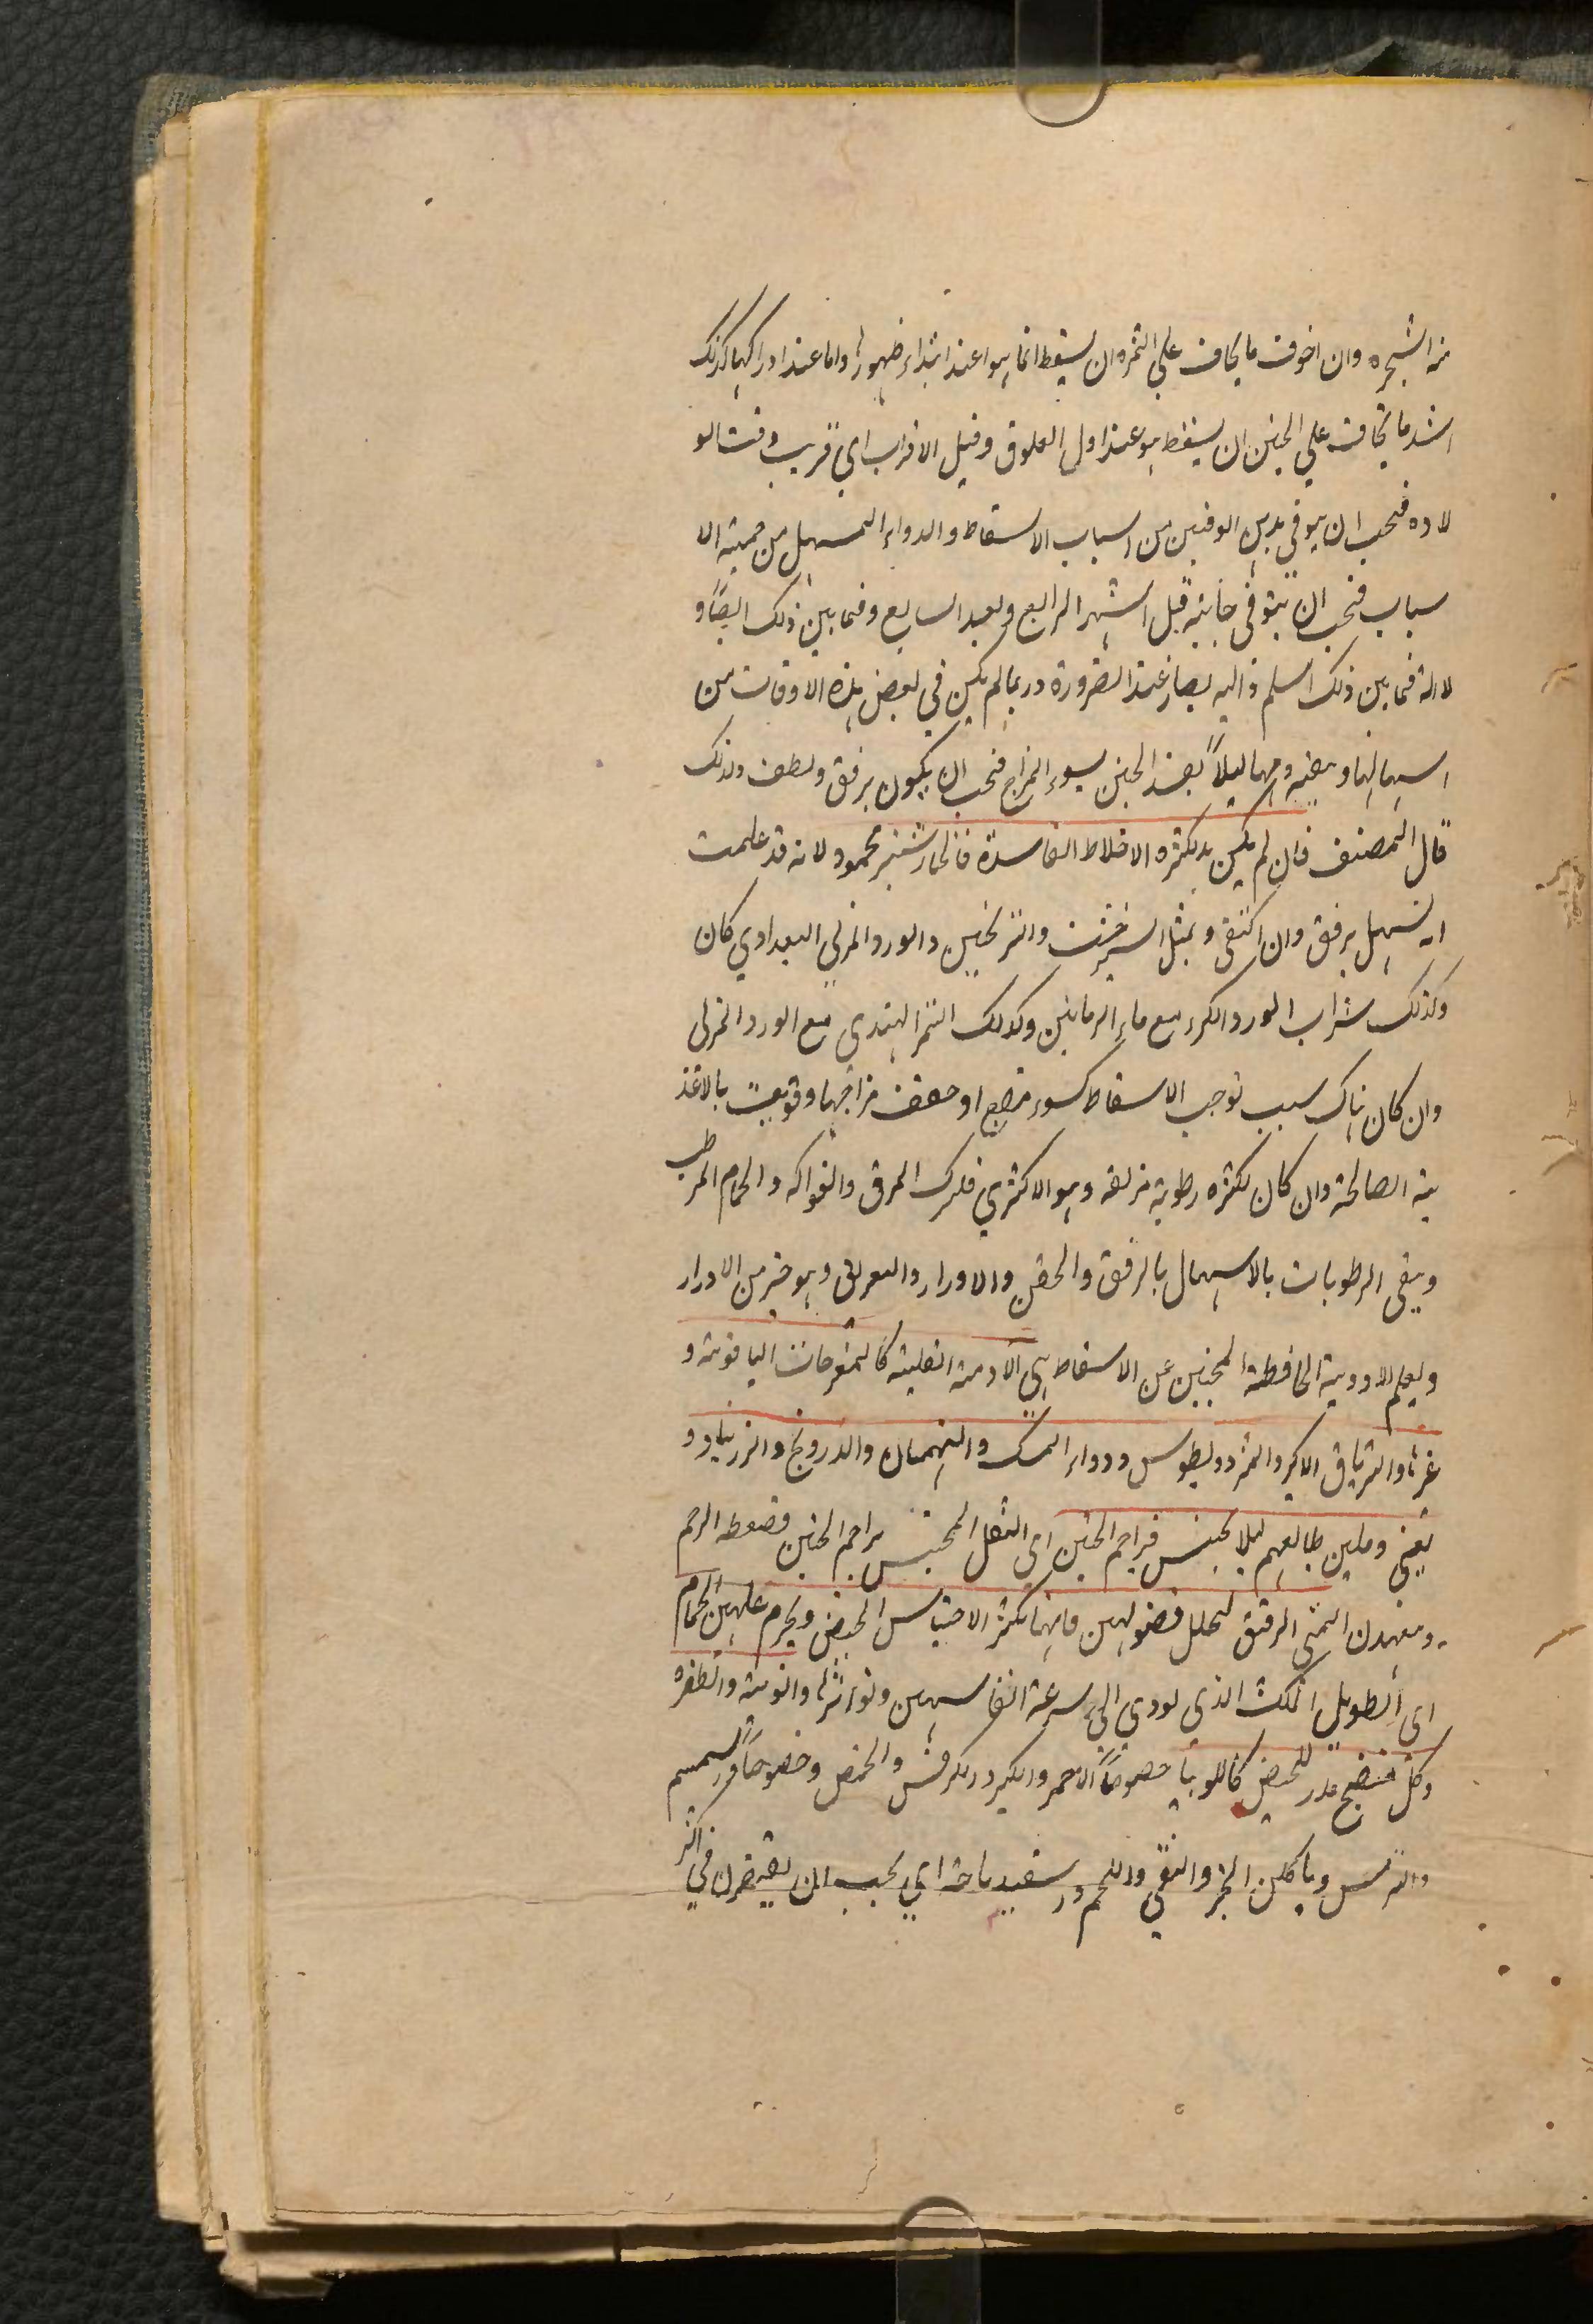 من الشجرة وان اخوف ما يخاف علي الثمرة ان يسقط انما هوا عند ابتداء ظهورها واما عند ادراكها كذلك
اشد ما يخاف علي الجنين ان يسقط هو عند اول العلوق وقبل الاقراب اي قريب وقت الو
لاده فيجب ان يتوقي بدين الوقتين من اسباب الاسقاط والدواء المسهل من جملة الا
سباب فيجب ان يتوقي جانبه قبل الشهر الرابع وبعد السابع وفيما بين ذلك ايضًا و
لانه فيما بين ذلك اسلم واليه يصار عند الضرورة وربما لم يكن في بعض هذه الاوقات من
اسهالها وتنقية دمها ليلاً يفسد الجنين بسوء المزاج فيجب ان يكون برفق ولطف ولذلك
قال المصنف فان لم يكن بد لكثره الاخلاط الفاسدة فالخيارشنبر محمود لانه قد علمت
انه يسهل برفق وان اكتفي و بمثل الشيرخشت والترنجبين والورد المربي البغدادي كان
وكذلك شراب الورد المكرر مع ماء الرمانين وكذلك التمر الهندي مع الورد المربى
وان كان هناك سبب يوجب الاسقاط كسوء مزاج او ضعف مزاجها وقويت بالاغذ
ية الصالحة وان كان لكثره رطوبة مزلقه وهو الاكثري فليترك المرق والفواكه والحمام المرطب
وينقي الرطوبات بالاسهال بالرفق والحقن والادرار والتعريق وهو خير من الادرار
وليعلم الادوية الحافظة للجنين عن الاسقاط هي الادوية القلبية كالمفرحات الياقوتية و
غيرها والترياق الاكبر والمثروديطوس ودواء المسك والبهمنان والدرونج والزرنباد و
يعني وملين طبايعهم ليلا يحتبس فيزاحم الجنين اي الثفل المحتبس يزاحم الجنين فضغطه الرحم
ويتعهدن المشي الرفيق لتحلل فضولهن فانها تكثر لاحتباس الحيض ويحرم عليهن الحمام
اي الطويل المكث الذي يودي الي سرعة انفاسهن وتواترها والوثبة والطفره
وكل منضج مدر للحيض كاللوبيا خصوصًا الاحمر والكبر والكرفس والحمص وخصوصًا والسمسم
والترمس وياكلن الخبز والنقي واللحم واسفيدباجة اي يجب ان يقتصرن في اكثر